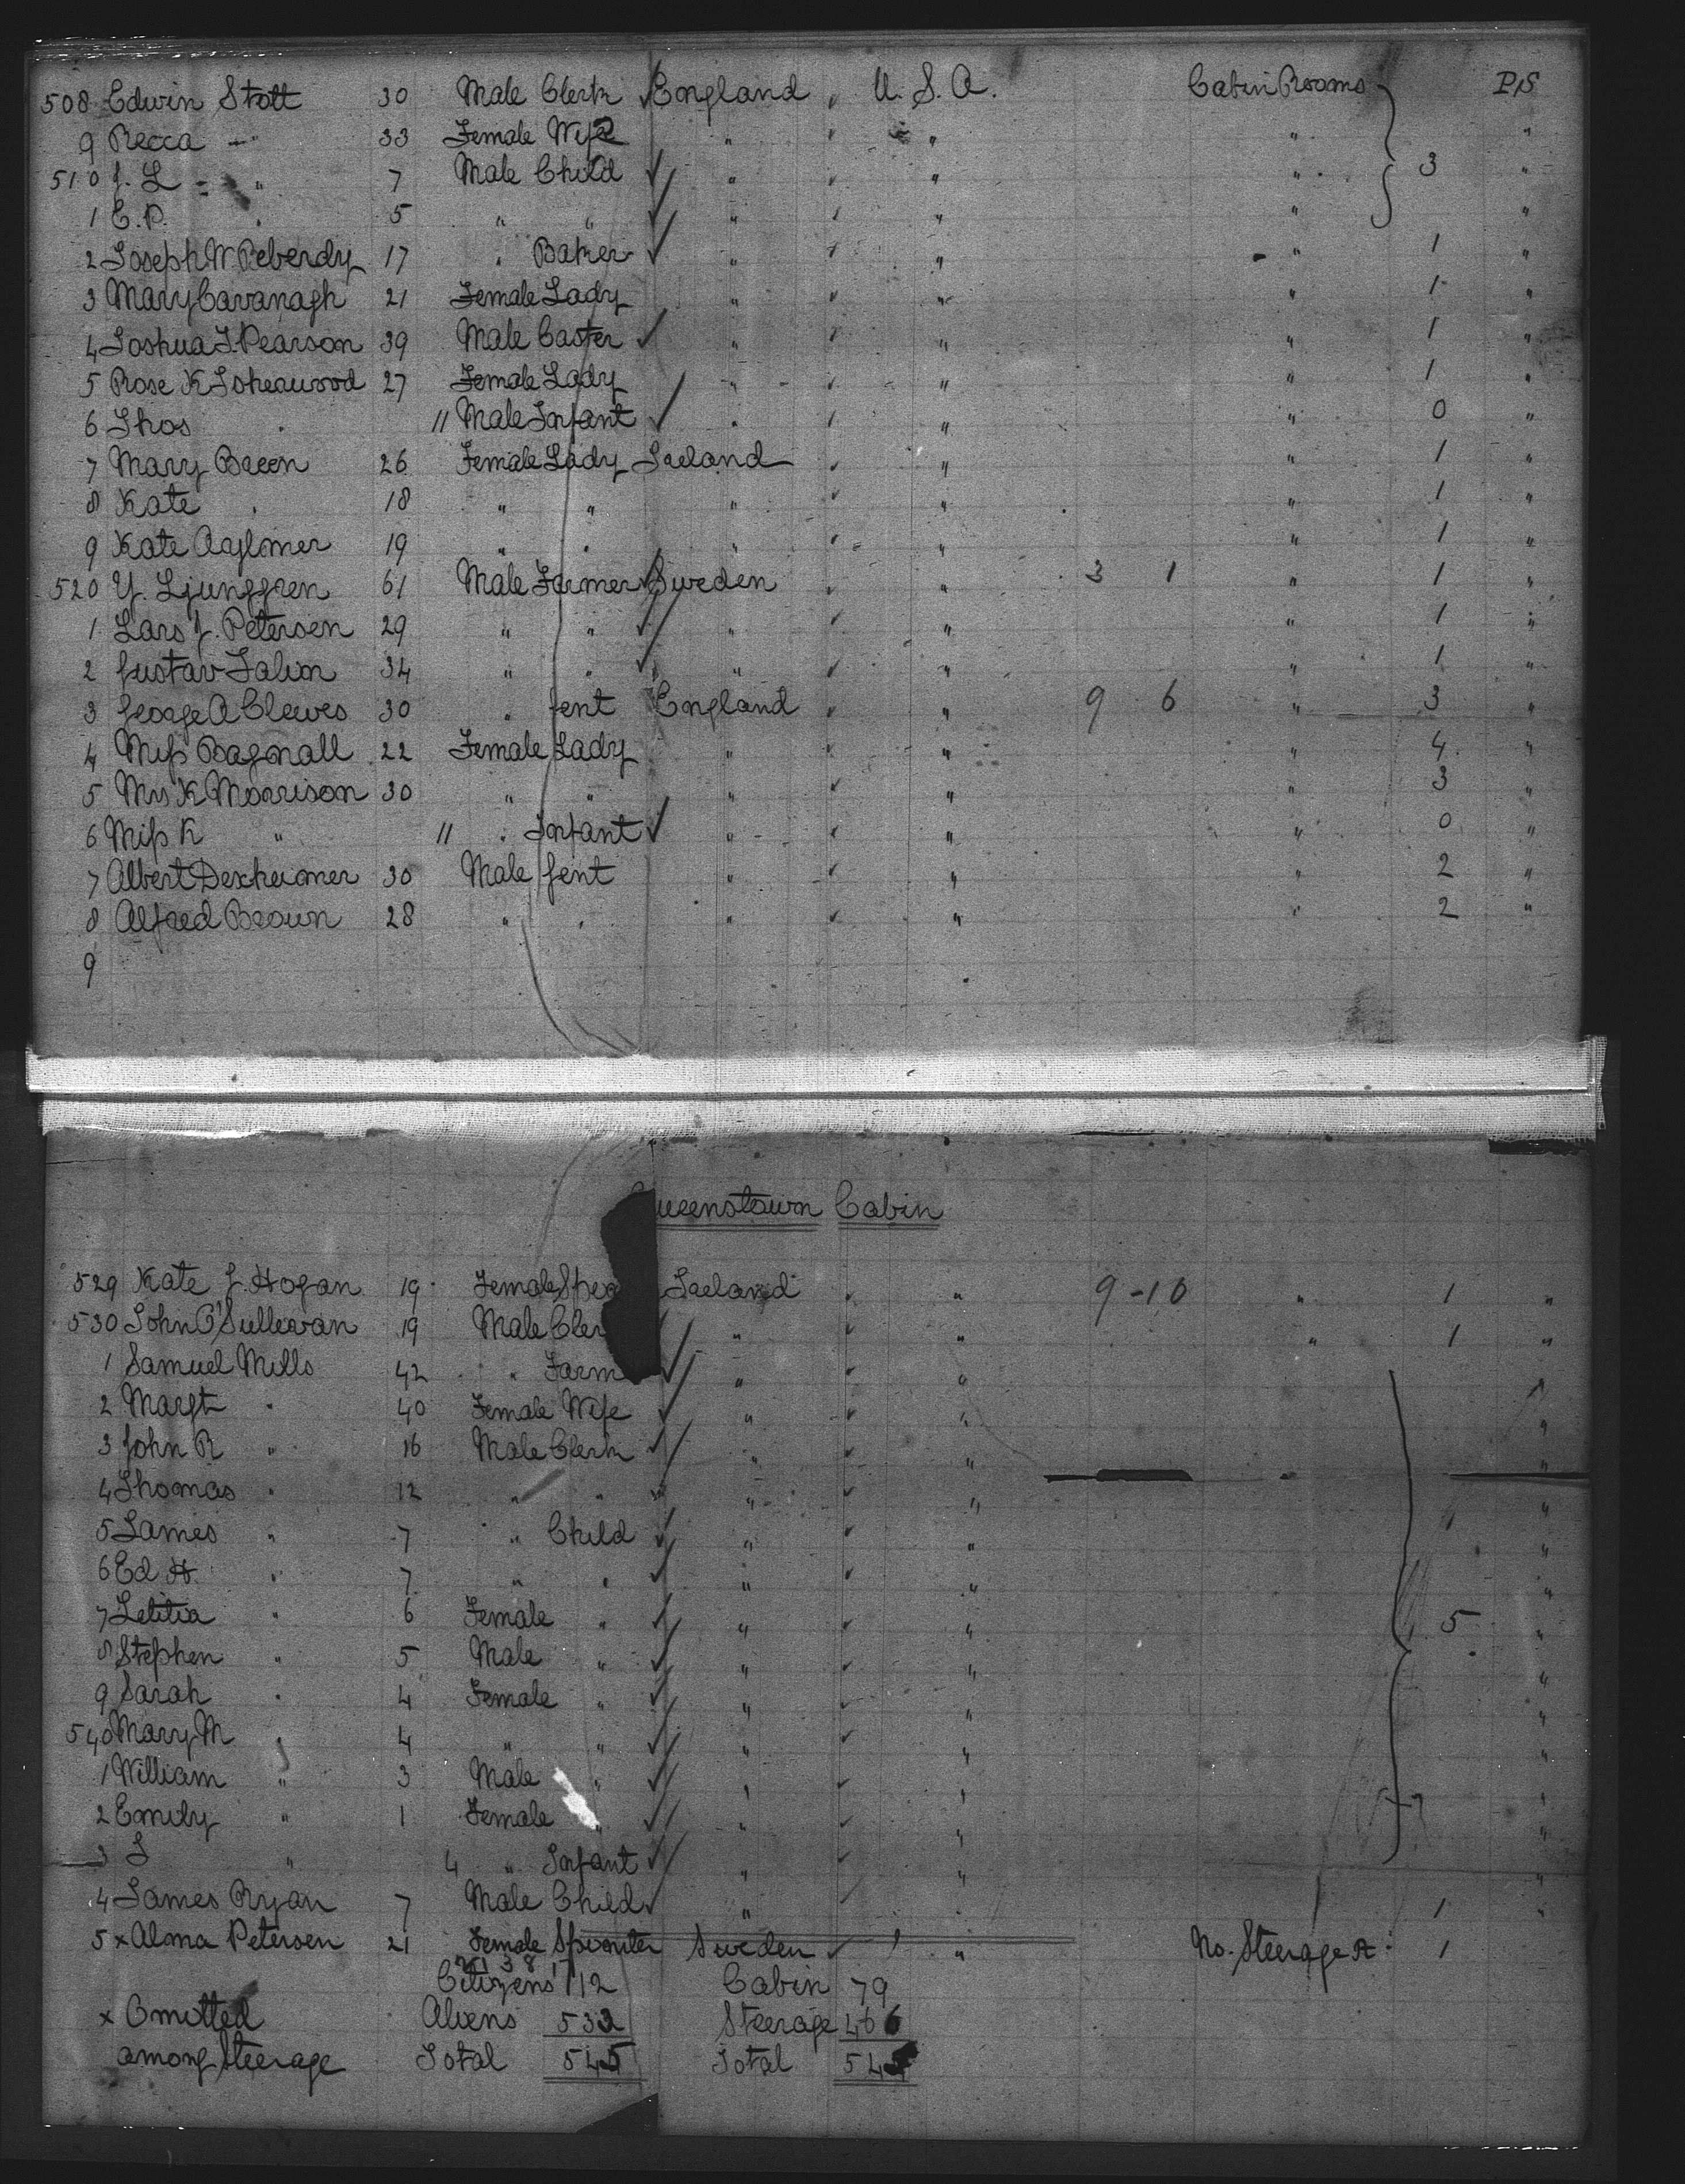 508 Edwin Stott 30 Male Clerk England " U. S. A. Cabin Rooms P/S
9 Recca " 33 Female Wife " " " "
510 J. L " 7 Male Child " " " 3 "
1 E. P. " 5 " " " " " "
2 Joseph W Peberdy 17 " Baker " " " 1 "
3 Mary Cavanagh 21 Female Lady " " " 1 "
4 Joshua J. Pearson 39 Male Caster " " " 1 "
5 Rose K Isherwood 27 Female Lady " " " 1 "
6 Thos " 11 Male Infant " " " 0 "
7 Mary Breen 26 Female Lady Ireland " " 1 "
8 Kate " 18 " " " " " 1 "
9 Kate Aylmer 19 " " " " " 1 "
520 Y. Ljunggren 61 Male Farmer Sweden " 3 1 " 1 "
1 Lars J. Petersen 29 " " " " " 1 "
2 Gustav Talin 34 " " " " " 1 "
3 George A Cleeves 30 " Gent England " 9 6 " 3 "
4 Miss Bagnall 22 Female Lady " " " 4 "
5 Mrs K Morrison 30 " " " " " 3 "
6 Miss K " 11 " Infant " " " 0 "
7 Albert Dexheimer 30 Male Gent " " " 2 "
8 Alfred Brown 28 " " " " " 2 "
9
Queenstown Cabin
529 Kate J. Hogan 19 Female Ireland " 9-10 " 1 "
530 John O'Sullivan 19 Male Cler " " " 1 "
1 Samuel Mills 42 " Farm " "
2 Margt " 40 Female Wife " " "
3 John R " 16 Male Clerk " " "
4 Thomas " 12 " " " " "
5 James " 7 " Child " " "
6 Ed H. " 7 " " " " "
7 Letitia " 6 Female " " " 5 "
8 Stephen " 5 Male " " " "
9 Sarah " 4 Female " " " "
540 Mary M " 4 " " " " "
1 William " 3 Male " " " "
2 Emily " 1 Female " " " "
3 J " 4 " Infant " " "
4 James Ryan 7 Male Child " " 1 "
5 x Alma Petersen 21 Female Spinster Sweden " No. Steerage A 1
Citizens 112 Cabin 79
x Omitted Aliens 533 Steerage 466
among Steerage Total 545 Total 545